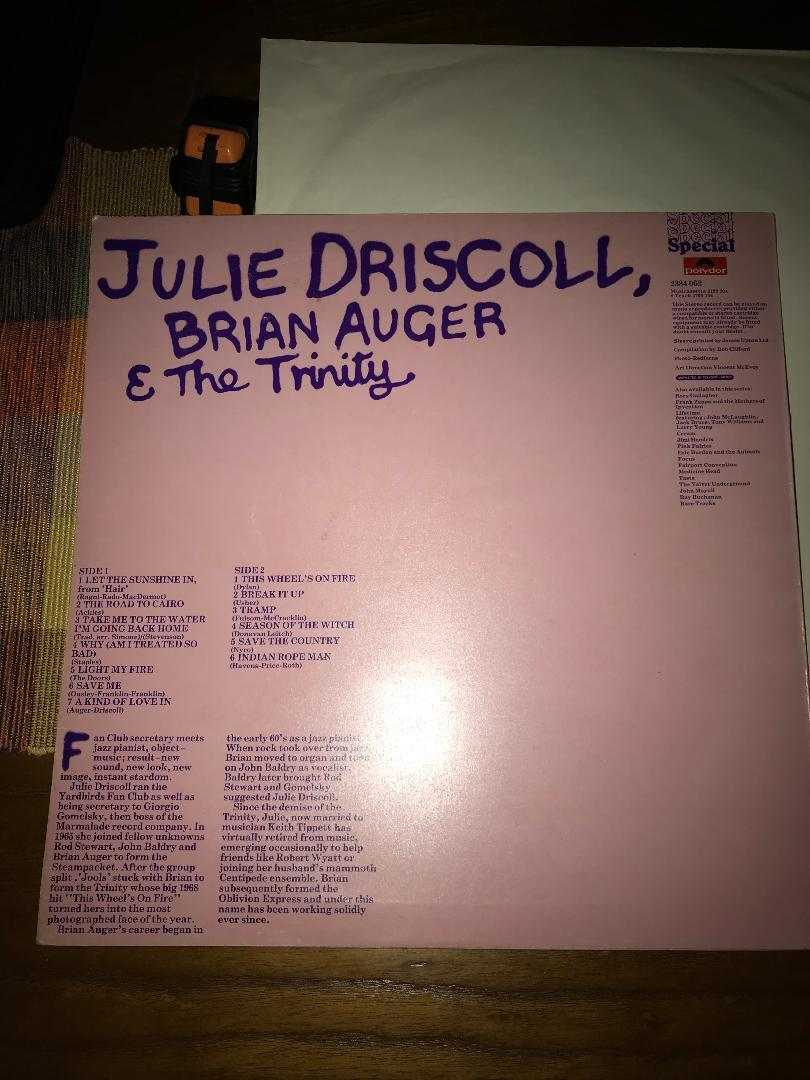 JULIE DRISCOLL,
BRIAN AUGER
& The Trinity
Special
polydor
2384 062
This Stereo record can be played on
Sleeve printed by James Upton Ltd
Compilation by Rob Clifford
Photo-Redferns
Art Direction Vincent McEvoy
Also available in this series:
Rory Gallagher
Frank Zappa and the Mothers of
Invention
Lifetime
featuring: John McLaughlin,
Jack Bruce, Tony Williams and
Larry Young
Cream
Jimi Hendrix
Pink Fairies
Eric Burdon and the Animals
Focus
Fairport Convention
Medicine Head
Taste
The Velvet Underground
John Mayall
Roy Buchanan
Rare Tracks
SIDE 1
1 LET THE SUNSHINE IN,
from 'Hair'
(Ragni-Rado-MacDermot)
2 THE ROAD TO CAIRO
(Ackles)
3 TAKE ME TO THE WATER
I'M GOING BACK HOME
(Trad. arr. Simone)/(Stevenson)
4 WHY (AM I TREATED SO
BAD)
(Staples)
5 LIGHT MY FIRE
(The Doors)
6 SAVE ME
(Ousley-Franklin-Franklin)
7 A KIND OF LOVE IN
(Auger-Driscoll)
SIDE 2
1 THIS WHEEL'S ON FIRE
(Dylan)
2 BREAK IT UP
(Usher)
3 TRAMP
(Fulsom-McCracklin)
4 SEASON OF THE WITCH
(Donovan Leitch)
5 SAVE THE COUNTRY
(Nyro)
6 INDIAN ROPE MAN
(Havens-Price-Roth)
Fan Club secretary meets
jazz pianist, object–
music; result–new
sound, new look, new
image, instant stardom.
Julie Driscoll ran the
Yardbirds Fan Club as well as
being secretary to Giorgio
Gomelsky, then boss of the
Marmalade record company. In
1965 she joined fellow unknowns
Rod Stewart, John Baldry and
Brian Auger to form the
Steampacket. After the group
split 'Jools' stuck with Brian to
form the Trinity whose big 1968
hit "This Wheel's On Fire"
turned hers into the most
photographed face of the year.
Brian Auger's career began in
the early 60's as a jazz pianist.
When rock took over from jazz,
Brian moved to organ and took
on John Baldry as vocalist.
Baldry later brought Rod
Stewart and Gomelsky
suggested Julie Driscoll.
Since the demise of the
Trinity, Julie, now married to
musician Keith Tippett has
virtually retired from music,
emerging occasionally to help
friends like Robert Wyatt or
joining her husband's mammoth
Centipede ensemble. Brian
subsequently formed the
Oblivion Express and under this
name has been working solidly
ever since.